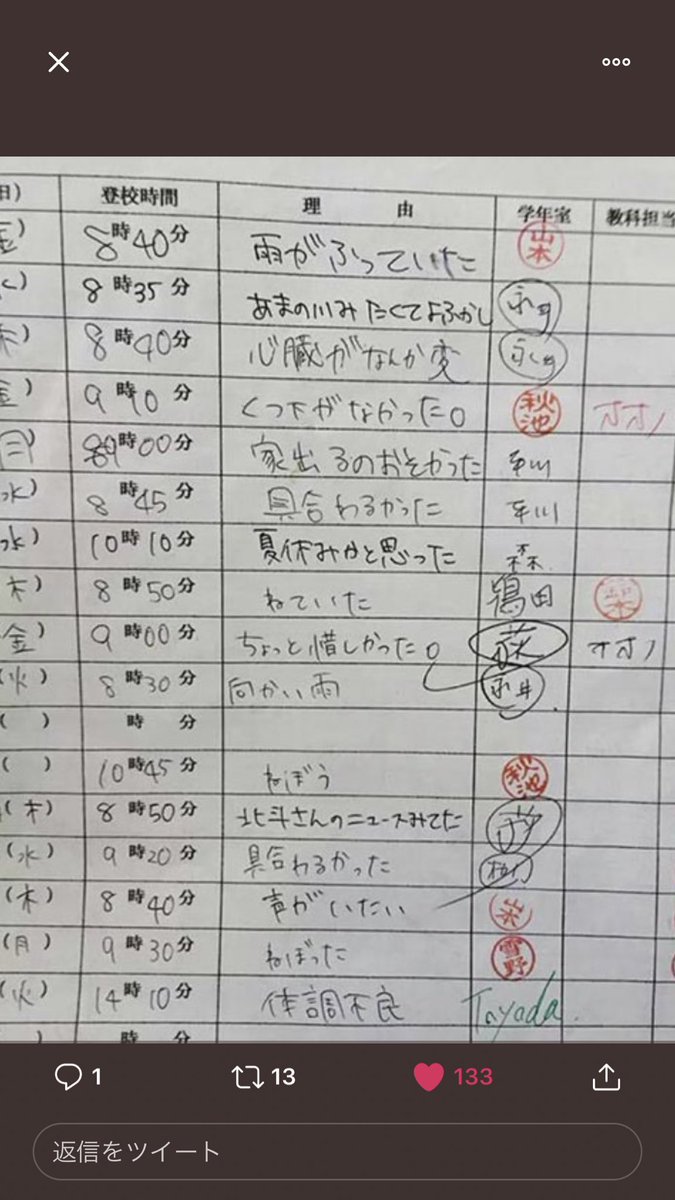 日) 登校時間 理由 学年室 教科担当
金) 8時40分 雨がふっていた 山本
8時35分 あまの川みたくてよふかし 永井
木) 8時40分 心臓がなんか変 永井
金) 9時10分 くつ下がなかった。 秋池 オオノ
月) 時00分 家出るのおそかった 平川
水) 8時45分 具合わるかった 平川
水) 10時10分 夏休みかと思った 森
木) 8時50分 ねていた 鴇田
金) 9時00分 ちょっと惜しかった。 オオノ
(火) 8時30分 向かい雨 永井
( ) 時 分
( ) 10時45分 ねぼう 秋池
(木) 8時50分 北斗さんのニュースみてた
(水) 9時20分 具合わるかった
(木) 8時40分 声がいたい
(月) 9時30分 ねぼった 雪野
(火) 14時10分 体調不良 Toyoda.
) 時 分
1 13 133
返信をツイート